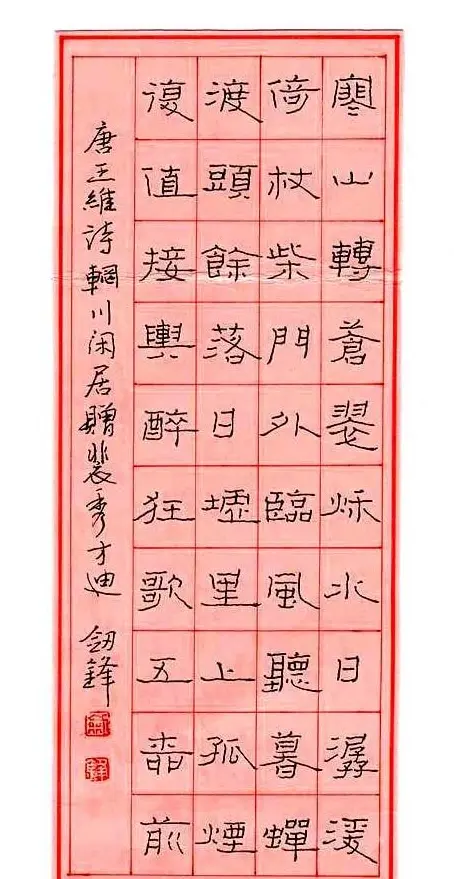 寒山轉蒼翠秌水日潺湲
倚杖柴門外臨風聽暮蟬
渡頭餘落日墟里上孤煙
復值接輿醉狂歌五柳前
唐王維詩輞川闲居贈裴秀才迪 釼鋒